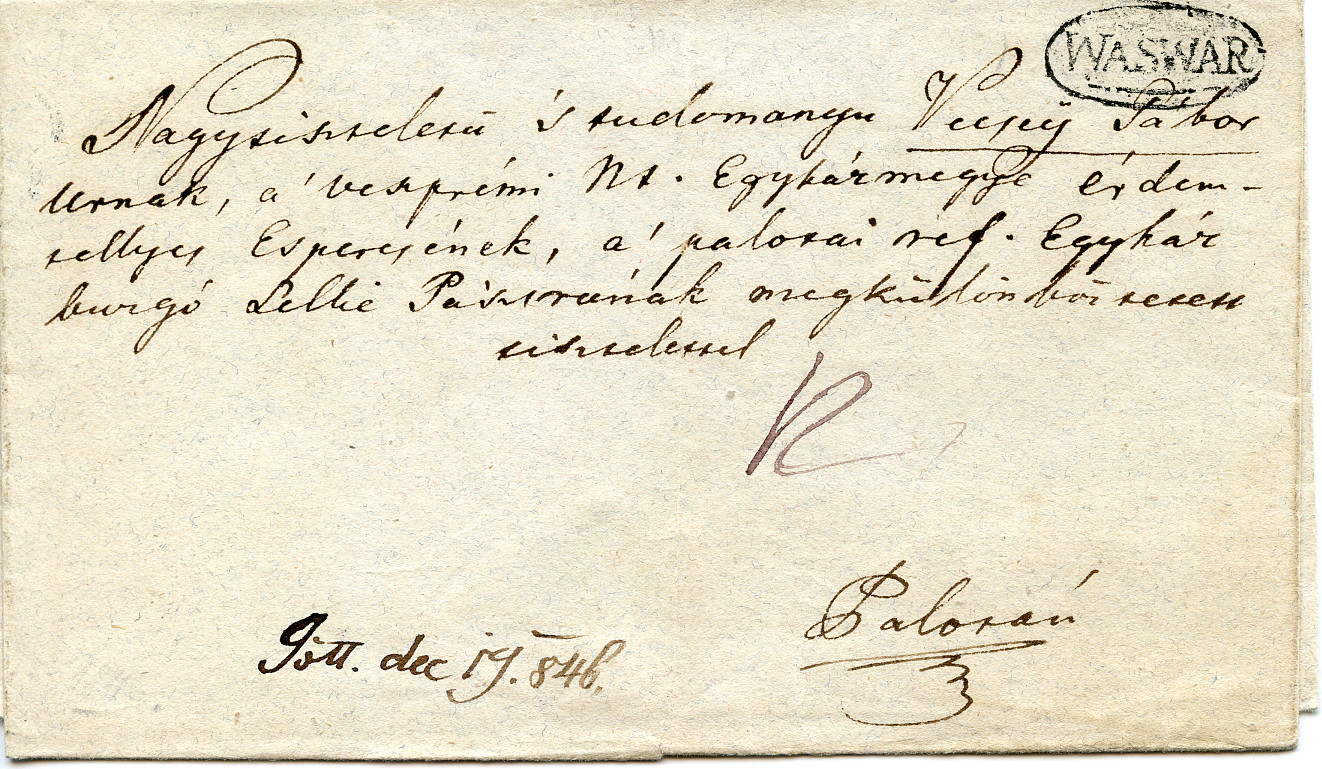 WASWAR
Nagytiszteletü 's tudomanyu Vecsey Tábor
Urnak, a' veszprémi Nt. Egyházmegye érdem-
tellyes Esperesének, a' palotai ref. Egyház
buzgó Lelki Pásztorának megkülönböztetett
tisztelettel
12
Palotán
Jött. dec 17. 846.